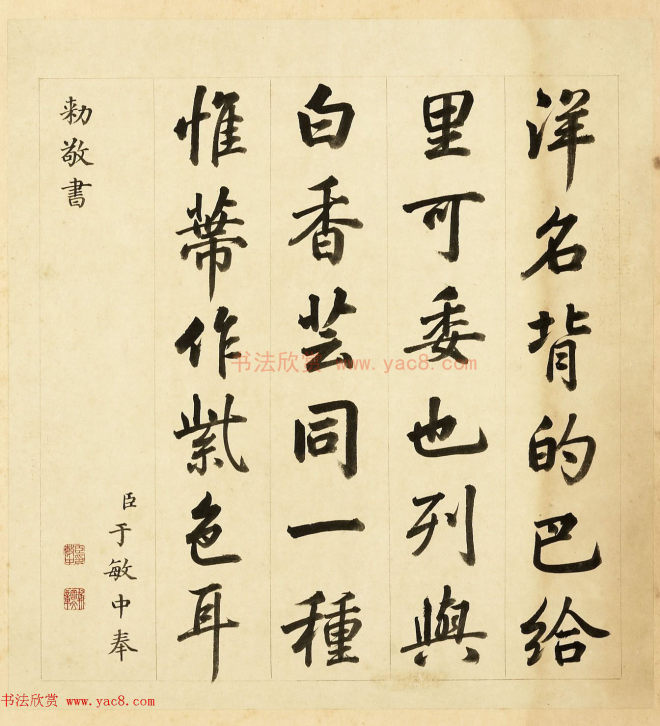 洋名背的巴給
里可委也列與
白香芸同一種
惟蒂作紫色耳
臣于敏中奉
勅敬書
书法欣赏 www.yac8.com
书法欣赏 www.yac8.com